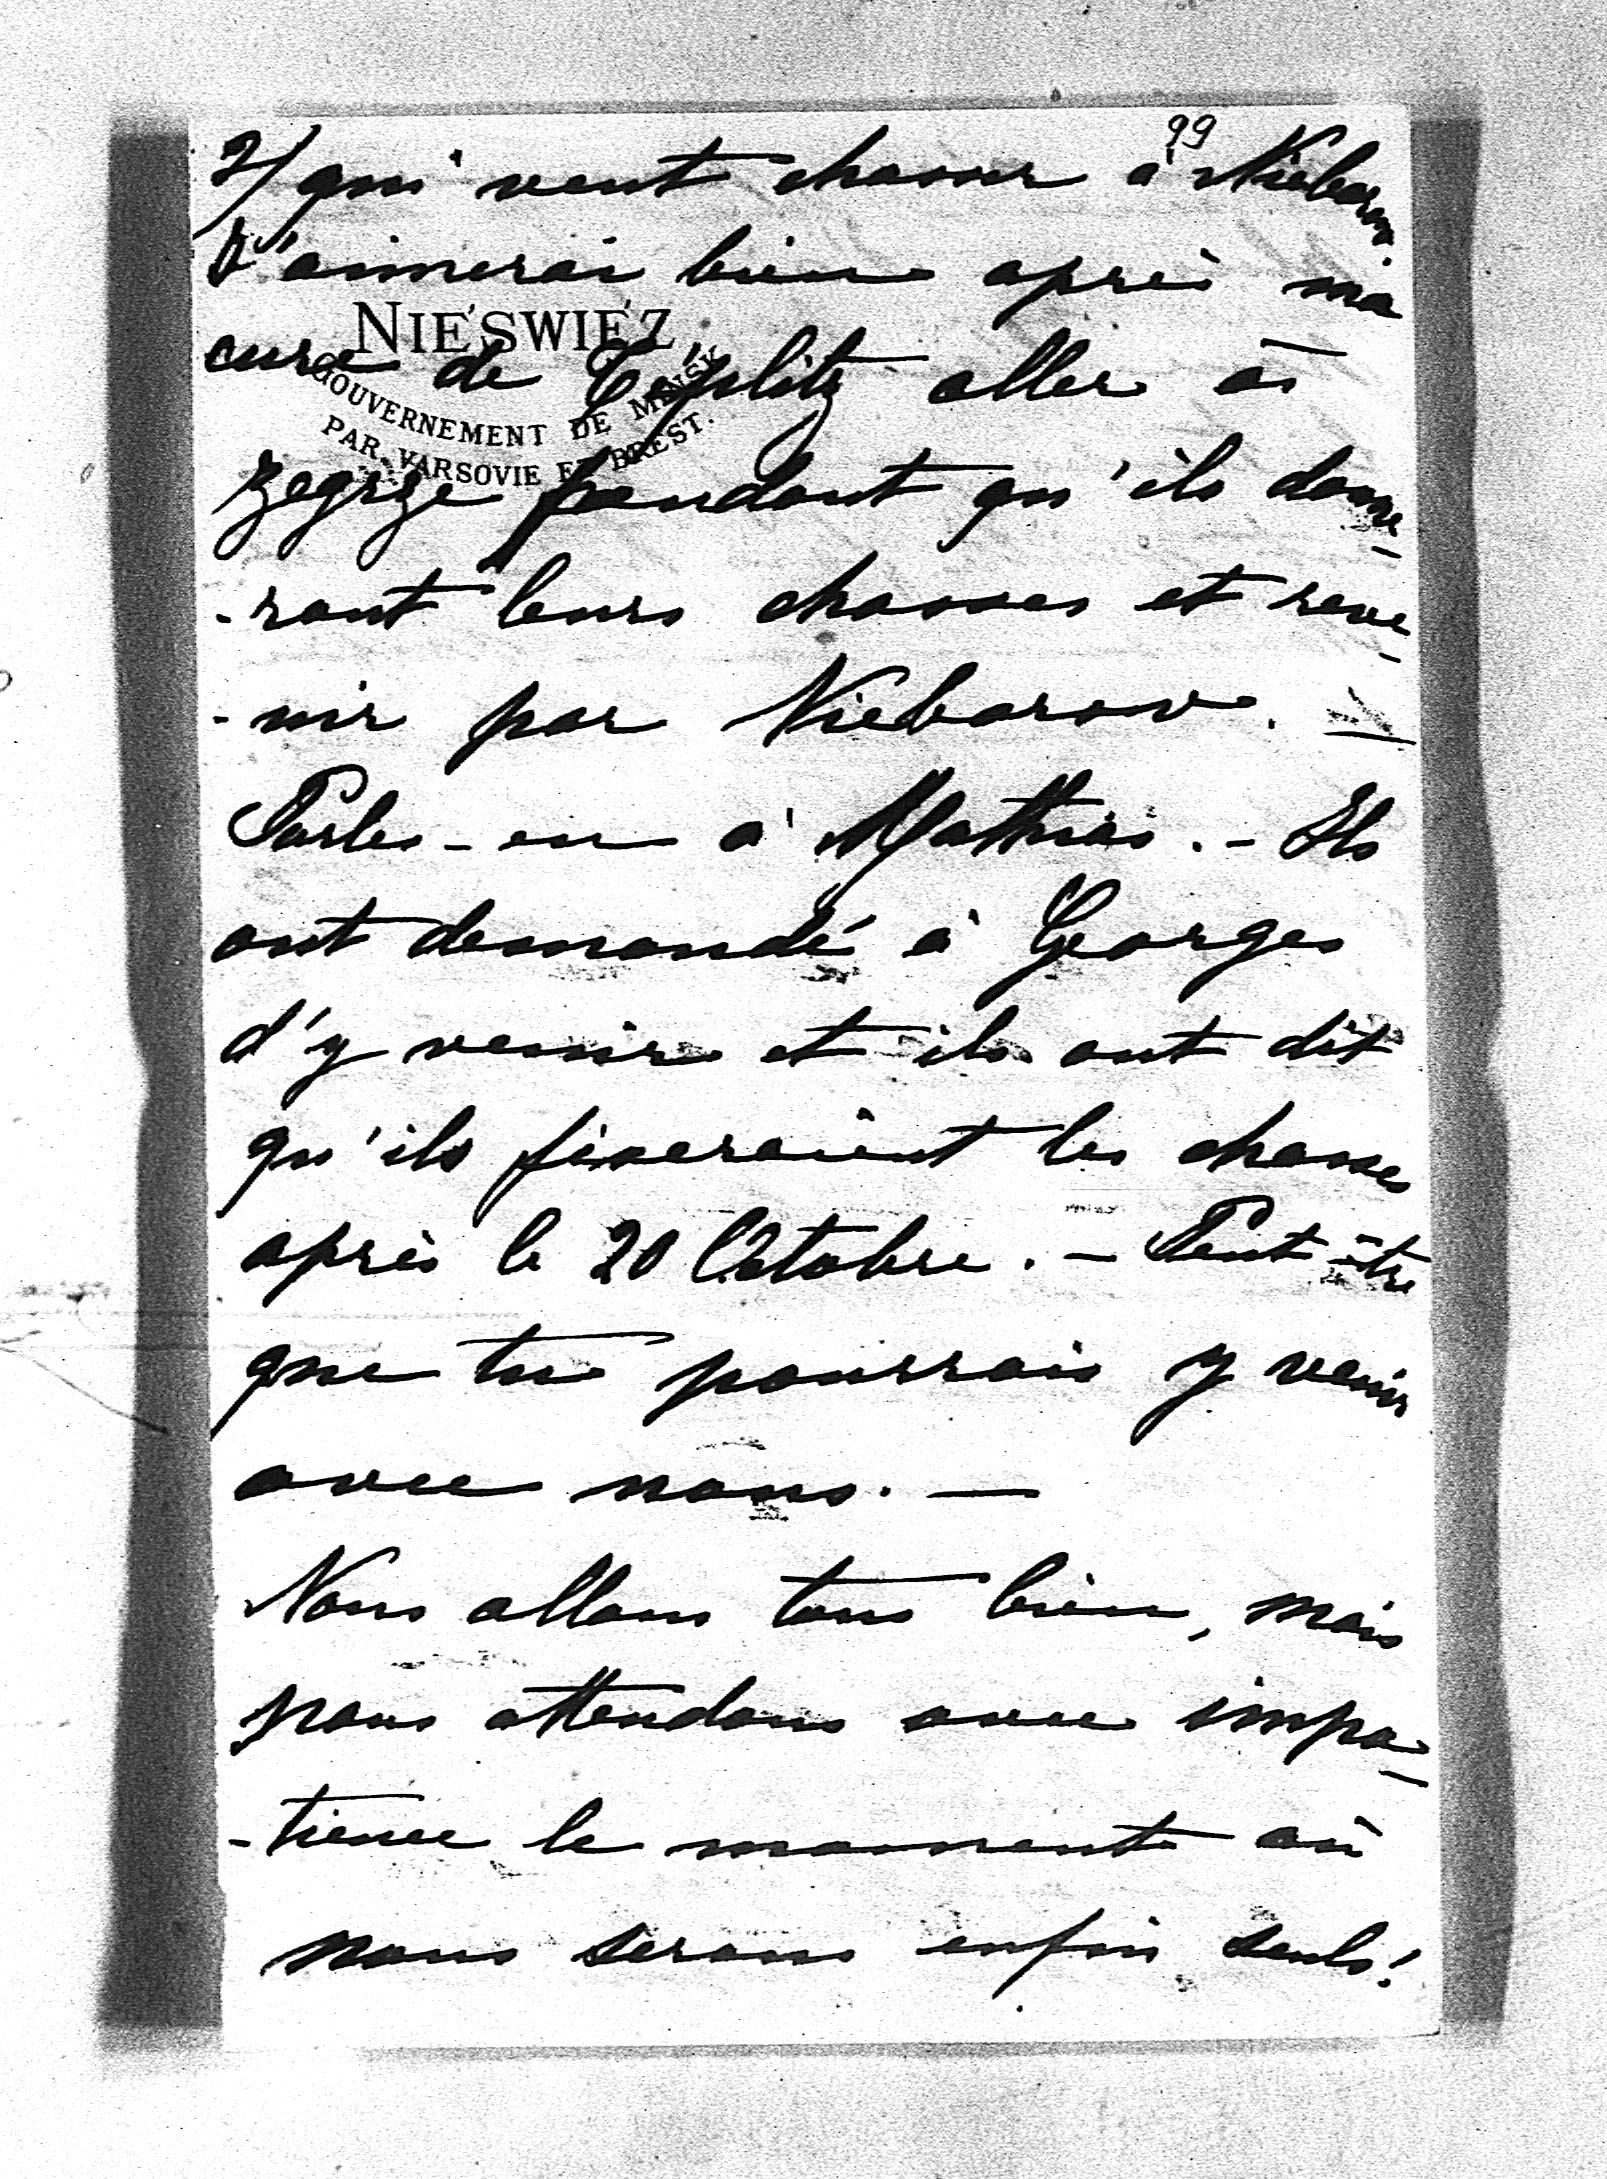 99
2/ qui veut chasser à Nieborow
J'aimerai bien après ma
NIEŚWIEŻ
cure de Teplitz aller à
GOUVERNEMENT DE MINSK
PAR VARSOVIE ET BREST.
Zegrze pendant qu'ils donne-
-ront leurs chasses et reve-
-nir par Nieborow.
Parles-en à Mathias. - Ils
ont demandé à Georges
d'y venir et ils ont dit
qu'ils fixeraient les chasses
après le 20 Octobre. - Peut-être
que tu pourrais y venir
avec nous. -
Nous allons tous bien, mais
nous attendons avec impa-
-tience le moment où
nous serons enfin seuls!